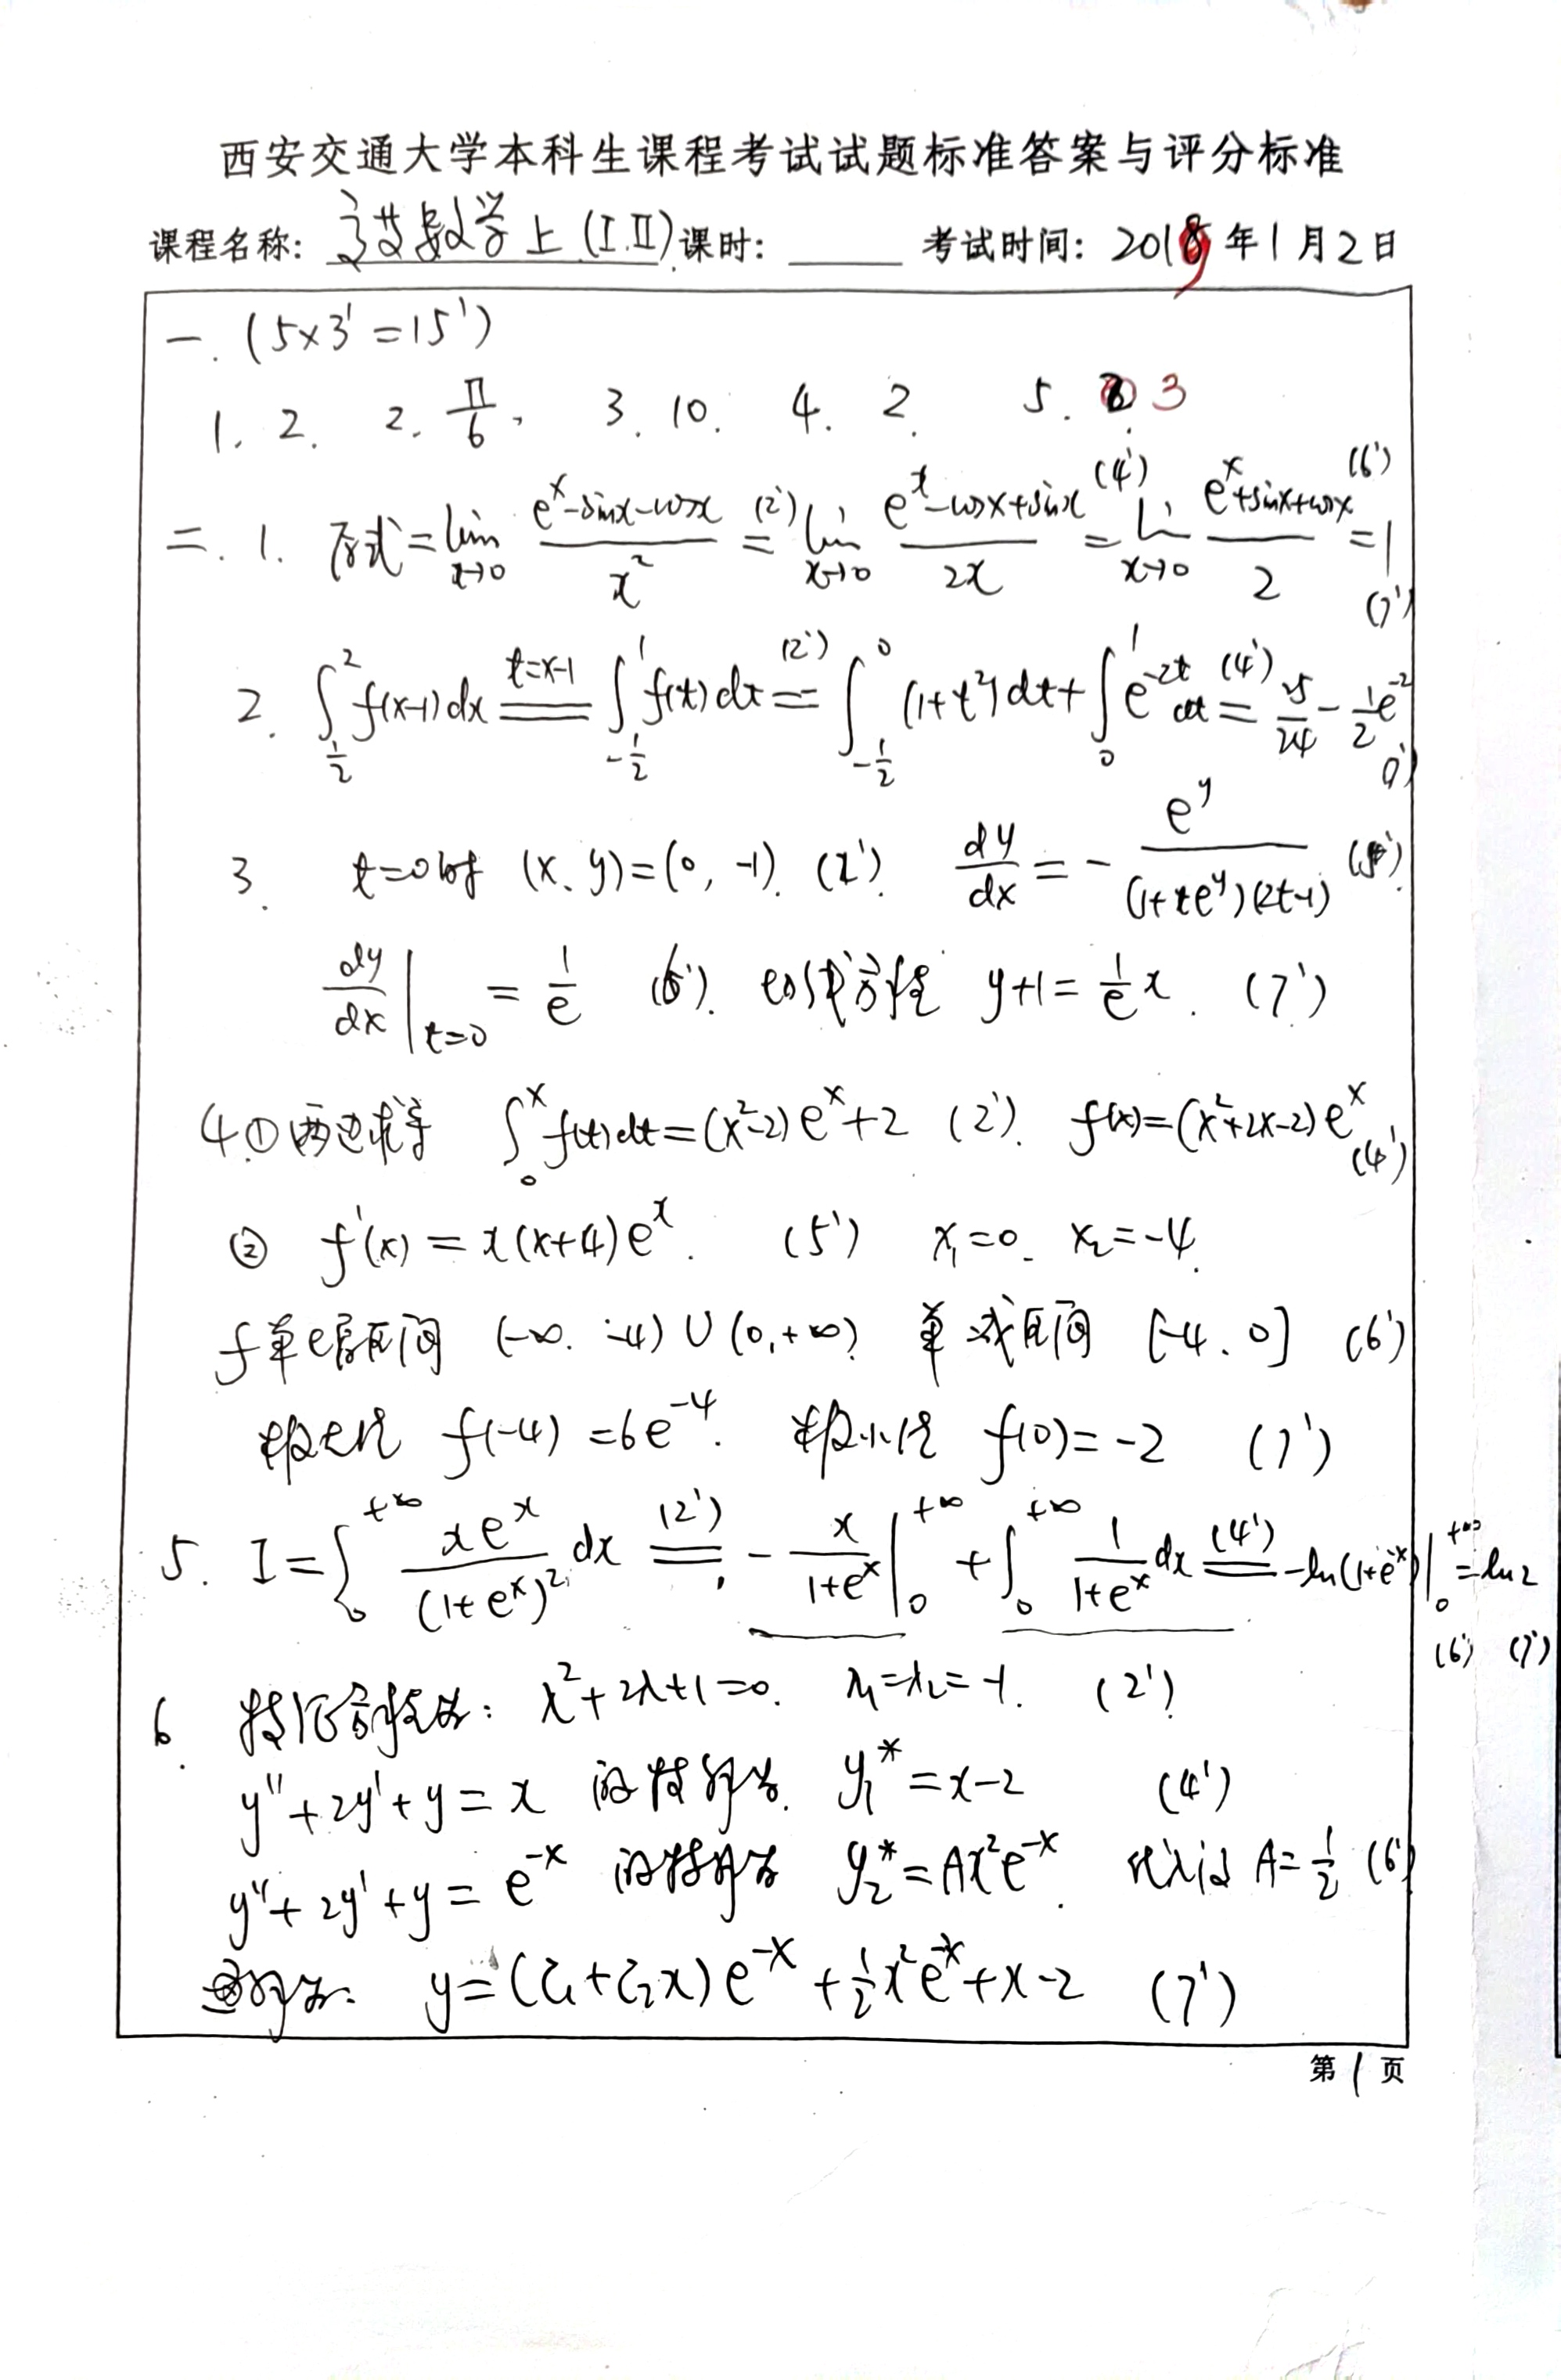 西安交通大学本科生课程考试试题标准答案与评分标准
课程名称: 高等数学上 (I.II) 课时: 考试时间: 2019年1月2日
一. (5×3'=15')
1. 2. 2. π/6, 3. 10. 4. 2. 5. 3
二. 1. 原式=lim_{x→0} (e^x-sinx-cosx)/x² =(2') lim_{x→0} (e^x-cosx+sinx)/2x (4') = lim_{x→0} (e^x+sinx+cosx)/2 (6') =1 (7')
2. ∫_{1/2}^{2} f(x-1)dx =(t=x-1) ∫_{-1/2}^{1} f(t)dt =(2') ∫_{-1/2}^{0} (1+t²)dt+∫_{0}^{1} e^{-2t}dt =(4') 25/24 - 1/2 e^{-2} (7')
3. t=0时 (x、y)=(0, -1). (2') dy/dx = - e^y/((1+te^y)(2t-1)) (5').
dy/dx|_{t=0} = 1/e (6'). 切线方程 y+1=1/e x. (7')
4.①两边求导 ∫_0^x f(t)dt=(x²-2)e^x+2 (2'). f(x)=(x²+2x-2)e^x (4')
② f'(x) = x(x+4)e^x. (5') x₁=0. x₂=-4.
f单增区间 (-∞. -4)∪(0,+∞), 单减区间 [-4、0] (6')
极大值 f(-4)=6e^{-4}. 极小值 f(0)=-2 (7')
5. I=∫_0^{+∞} xe^x/(1+e^x)² dx =(2') - x/(1+e^x)|_0^{+∞} +∫_0^{+∞} 1/(1+e^x) dx =(4') -ln(1+e^{-x})|_0^{+∞} =ln2
(6') (7')
6. 特征方程为: λ²+2λ+1=0. λ₁=λ₂=-1. (2')
y''+2y'+y=x 的特解为. y₁*=x-2 (4')
y''+2y'+y=e^{-x} 的特解为 y₂*=Ax²e^{-x}. 代入得 A=1/2 (6')
通解为. y=(C₁+C₂x)e^{-x}+1/2x²e^{-x}+x-2 (7')
第1页